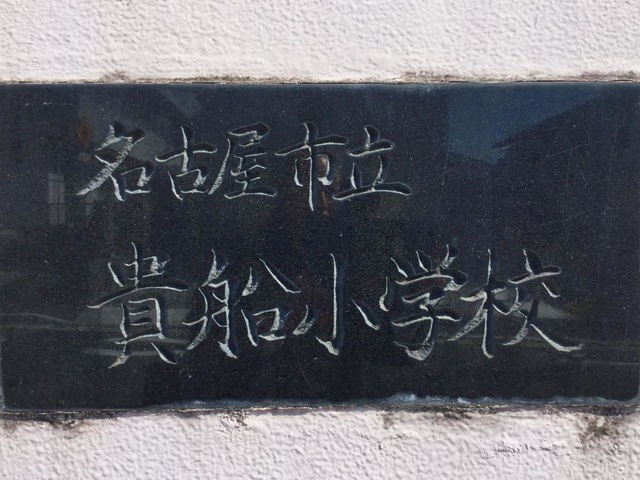 名古屋市立
貴船小学校